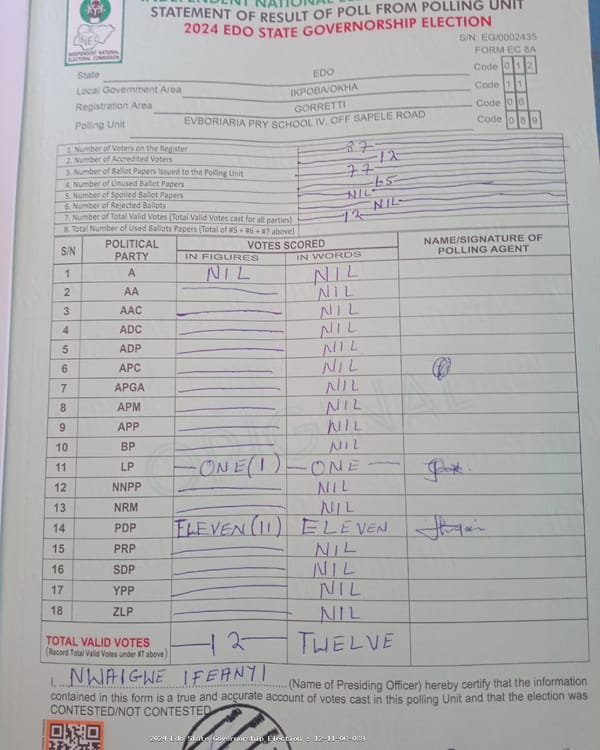 INDEPENDENT NATIONAL
STATEMENT OF RESULT OF POLL FROM POLLING UNIT
2024 EDO STATE GOVERNORSHIP ELECTION
INEC
INDEPENDENT NATIONAL
ELECTORAL COMMISSION
S/N: EG/0002435
FORM EC 8A
State EDO Code 0 1 2
Local Government Area IKPOBA/OKHA Code 1 1
Registration Area GORRETTI Code 0 6
Polling Unit EVBORIARIA PRY SCHOOL IV, OFF SAPELE ROAD Code 0 8 9
1. Number of Voters on the Register 87
2. Number of Accredited Voters 12
3. Number of Ballot Papers Issued to the Polling Unit 77
4. Number of Unused Ballot Papers 65
5. Number of Spoiled Ballot Papers NIL
6. Number of Rejected Ballots NIL
7. Number of Total Valid Votes (Total Valid Votes cast for all parties) 12
8. Total Number of Used Ballots Papers (Total of #5 + #6 + #7 above)
S/N POLITICAL PARTY VOTES SCORED NAME/SIGNATURE OF POLLING AGENT
IN FIGURES IN WORDS
1 A NIL NIL
2 AA NIL
3 AAC NIL
4 ADC NIL
5 ADP NIL
6 APC NIL
7 APGA NIL
8 APM NIL
9 APP NIL
10 BP NIL
11 LP ONE(1) ONE
12 NNPP NIL
13 NRM NIL
14 PDP ELEVEN(11) ELEVEN
15 PRP NIL
16 SDP NIL
17 YPP NIL
18 ZLP NIL
TOTAL VALID VOTES 12 TWELVE
(Record Total Valid Votes under #7 above)
ORIGINAL
I, NWAIGWE IFEANYI (Name of Presiding Officer) hereby certify that the information
contained in this form is a true and accurate account of votes cast in this polling Unit and that the election was
CONTESTED/NOT CONTESTED
2024 Edo State Governorship Election : 12-11-06-089